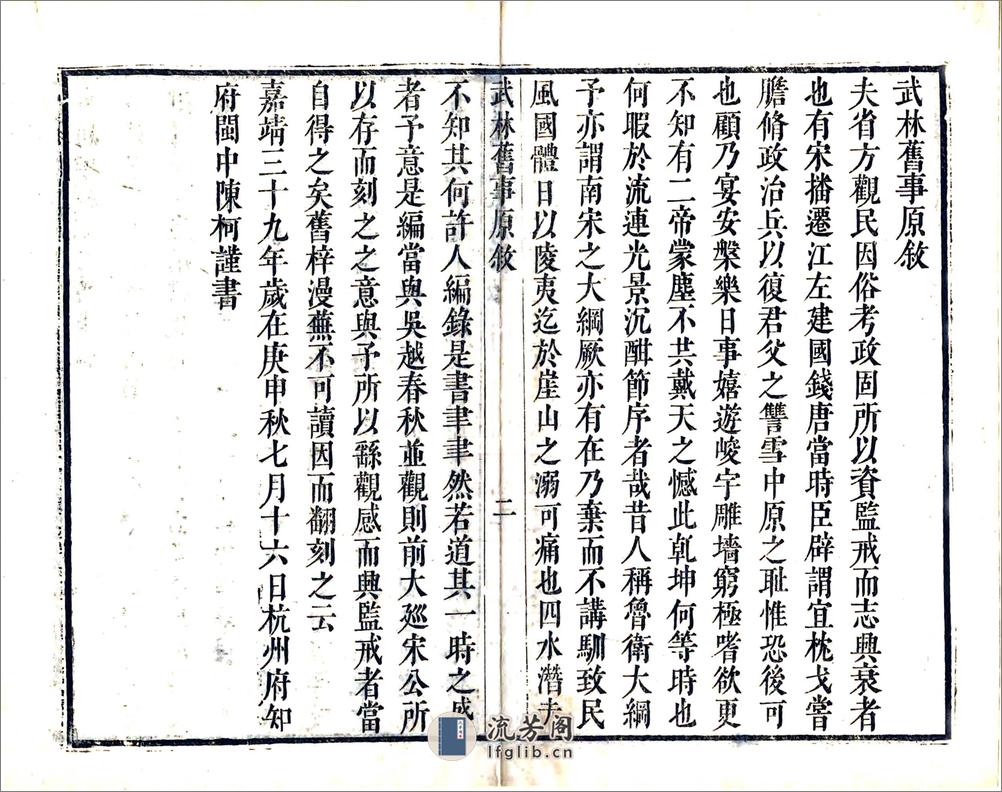 武林舊事原敘
夫省方觀民因俗考政固所以資監戒而志興衰者
也有宋播遷江左建國錢唐當時臣辟謂宜枕戈嘗
膽脩政治兵以復君父之讐雪中原之耻惟恐後可
也顧乃宴安槃樂日事嬉遊峻宇雕墻窮極嗜欲更
不知有二帝蒙塵不共戴天之憾此乹坤何等時也
何暇於流連光景沉酣節序者哉昔人稱魯衛大綱
予亦謂南宋之大綱厥亦有在乃棄而不講馴致民
風國體日以陵夷迄於崖山之溺可痛也四水潛夫
武林舊事原敘
二
不知其何許人編錄是書聿聿然若道其一時之盛
者予意是編當與吳越春秋並觀則前大廵宋公所
以存而刻之之意與予所以繇觀感而興監戒者當
自得之矣舊梓漫蕪不可讀因而翻刻之云
嘉靖三十九年歲在庚申秋七月十六日杭州府知
府閩中陳柯謹書
流芳阁
lfglib.cn